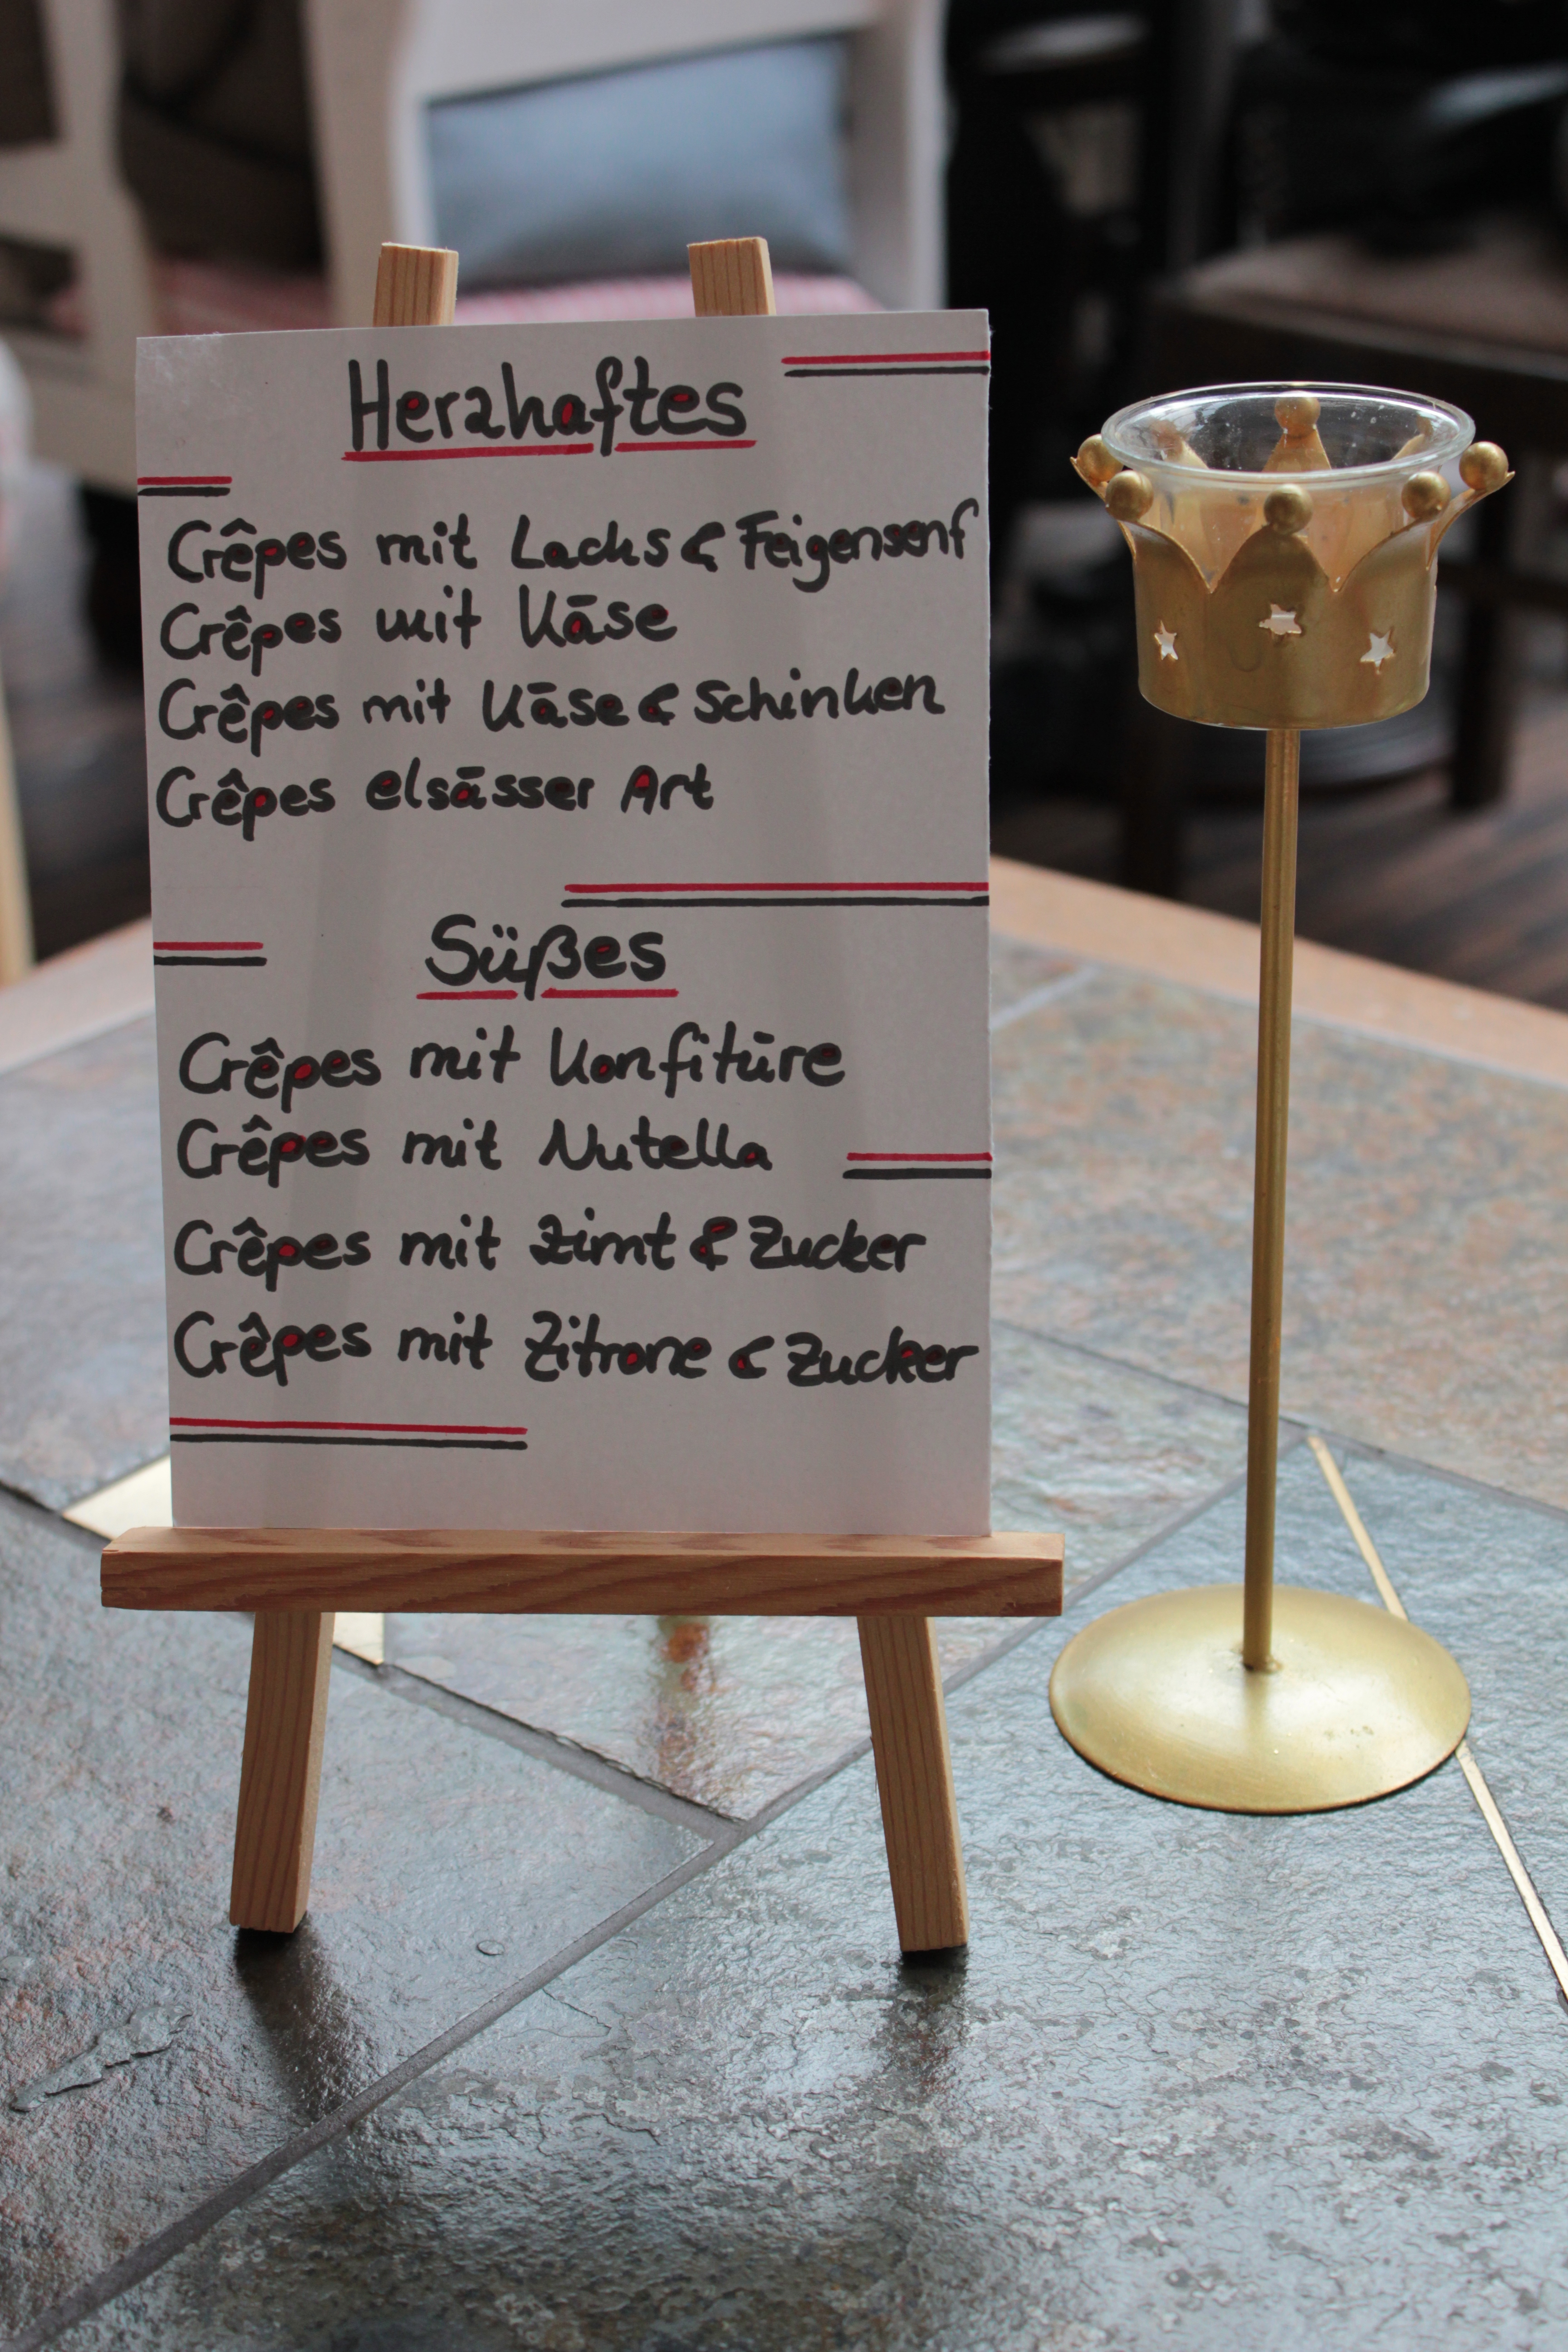 Herzhaftes
Crêpes mit Lachs & Feigensenf
Crêpes mit Käse
Crêpes mit Käse & Schinken
Crêpes elsässer Art
Süßes
Crêpes mit Konfitüre
Crêpes mit Nutella
Crêpes mit Zimt & Zucker
Crêpes mit Zitrone & Zucker